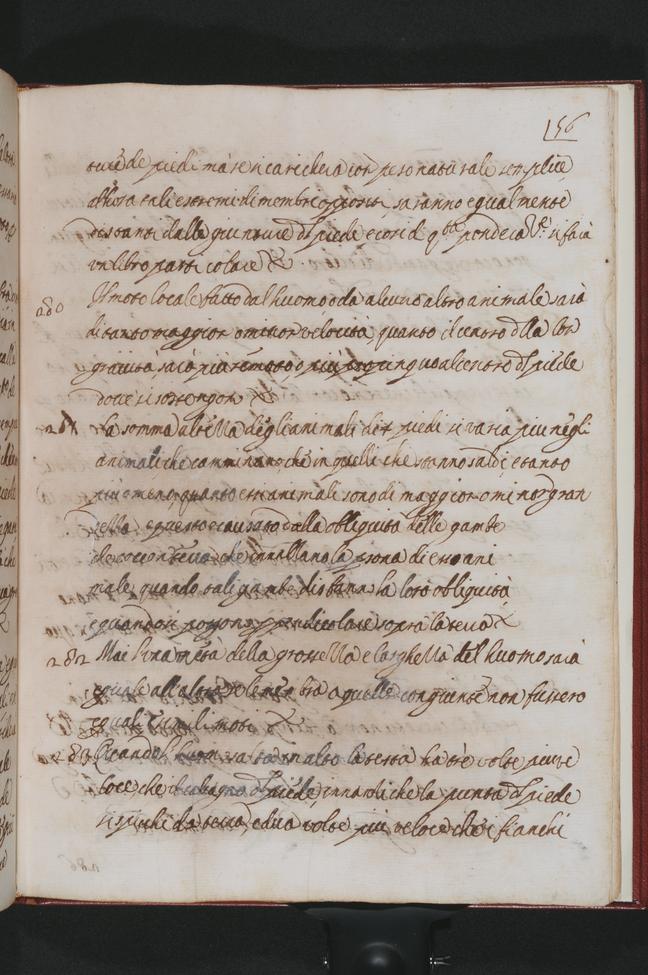 156
ture de piedi mà se ricaricherà con peso naturale semplice
allhora tali estremi di membri opposti saranno egualmente
distanti dalle giunture di piedi e così
un libro particolare &
280 Il moto locale fatto dal huomo o da alcuno altro animale sarà
di tanto maggior o minor velocità, quanto il centro dlla lor
gravità sarà più remoto o più propinquo al centro dl piede
dove si sostengono &
281 La somma altezza degli animali di 4 piedi si varia piu negli
animali che caminano che in quelli che stanno saldi, e tanto
più o meno quanto essi animali sono di maggior o minor gran
dezza e questo è causato dalla obliquità delle gambe
che toccon terra che innallano la di esso ani
male quando tali gambe disfanno la loro obliquità
e quando si pongono perpendicolare sopra la terra &
282 Mai l'una metà della grossezza e larghezza del huomo sarà
equale all'altra se le membra a quelle congiunte non fussero
equali simili moti &
283 Levando l'huomo in salto in alto la testa ha tre volte più ve
loce, che il calcagno dl piede, innanzi che la punta dl piede
si spichi da terra, e dua volte più veloce che i fianchi